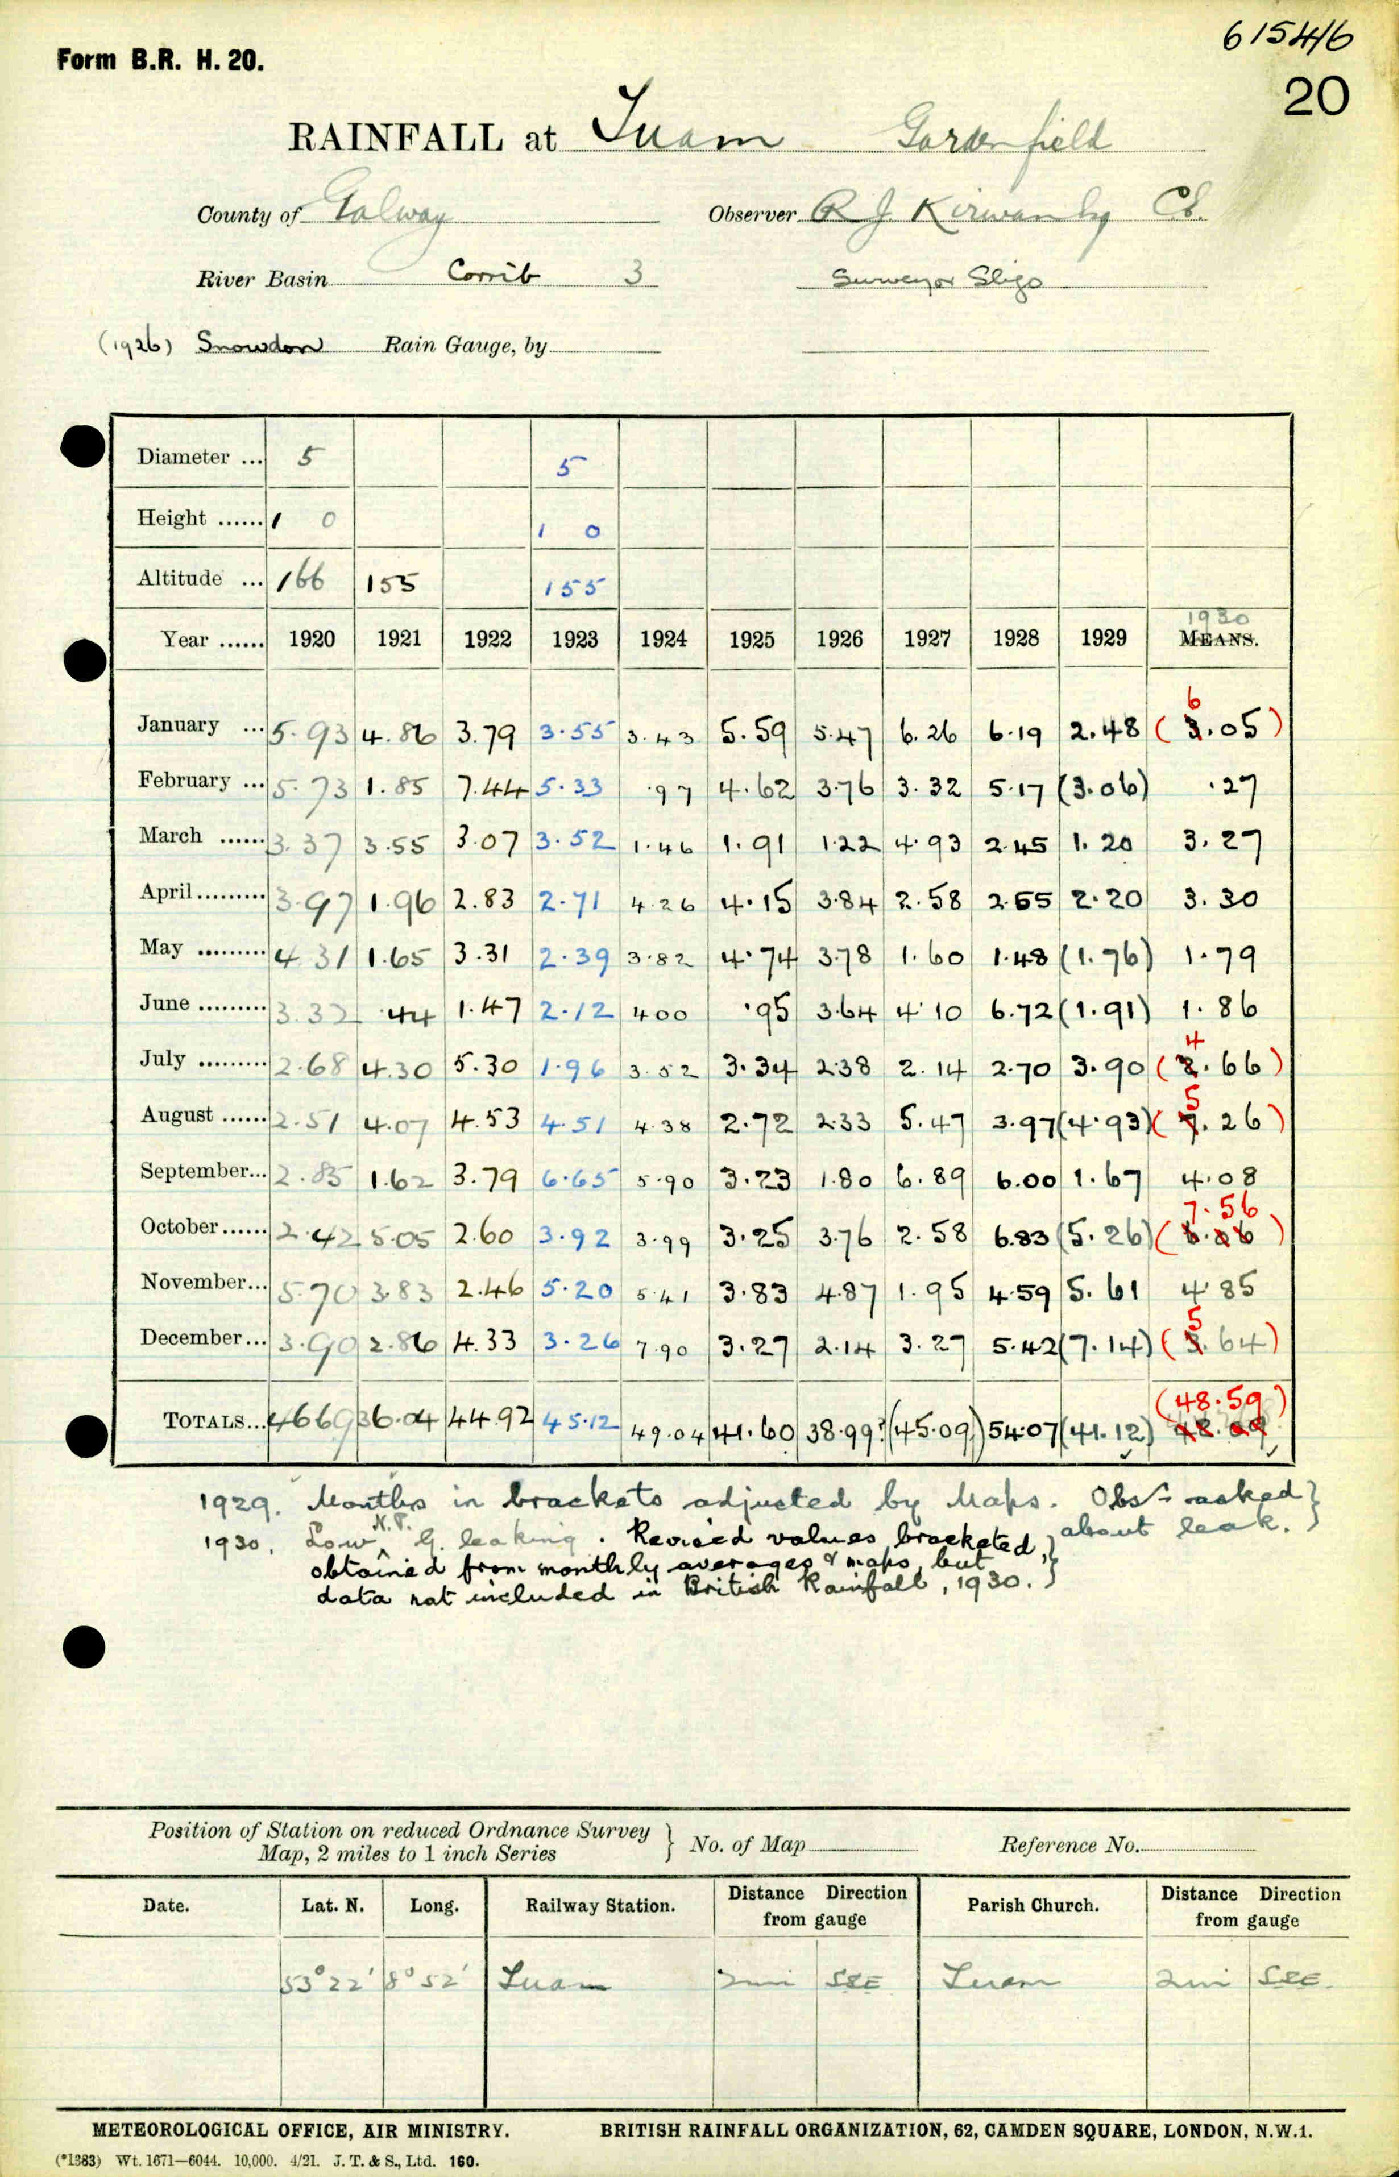 61546
Form B.R. H. 20.
20
RAINFALL at Tuam Gardenfield
County of Galway Observer R J Kirwan Esq Co.
River Basin Corrib 3 Surveyor Sligo
(1926) Snowdon Rain Gauge, by
Diameter ... 5 5
Height ...... 1 0 1 0
Altitude ... 166 155 155
1930
Year ...... 1920 1921 1922 1923 1924 1925 1926 1927 1928 1929 MEANS.
6
January ... 5.93 4.86 3.79 3.55 3.43 5.59 5.47 6.26 6.19 2.48 (3.05)
February ... 5.73 1.85 7.44 5.33 .97 4.62 3.76 3.32 5.17 (3.06) .27
March ...... 3.37 3.55 3.07 3.52 1.46 1.91 1.22 4.93 2.45 1.20 3.27
April ......... 3.97 1.96 2.83 2.71 4.26 4.15 3.84 2.58 2.55 2.20 3.30
May ......... 4.31 1.65 3.31 2.39 3.82 4.74 3.78 1.60 1.48 (1.76) 1.79
June ......... 3.32 .44 1.47 2.12 4.00 .95 3.64 4.10 6.72 (1.91) 1.86
4
July ......... 2.68 4.30 5.30 1.96 3.52 3.34 2.38 2.14 2.70 3.90 (2.66)
5
August ...... 2.51 4.07 4.53 4.51 4.38 2.72 2.33 5.47 3.97 (4.93) (7.26)
September... 2.85 1.62 3.79 6.65 5.90 3.23 1.80 6.89 6.00 1.67 4.08
7.56
October...... 2.42 5.05 2.60 3.92 3.99 3.25 3.76 2.58 6.83 (5.26) ( )
November... 5.70 3.83 2.46 5.20 5.41 3.83 4.87 1.95 4.59 5.61 4.85
5
December... 3.90 2.86 4.33 3.26 7.90 3.27 2.14 3.27 5.42 (7.14) (3.64)
(48.59)
TOTALS... 46.69 36.04 44.92 45.12 49.04 41.60 38.99? (45.09) 54.07 (41.12)
1929. Months in brackets adjusted by Maps. Obsr asked
about leak.
1930. Low N.P. G. leaking. Revised values bracketed,
obtained from monthly averages & maps, but
data not included in British Rainfall, 1930.
Position of Station on reduced Ordnance Survey
Map, 2 miles to 1 inch Series
No. of Map Reference No.
Date. Lat. N. Long. Railway Station. Distance Direction from gauge Parish Church. Distance Direction from gauge
53°22' 8°52' Tuam 2mi SSE Tuam 2mi SSE
METEOROLOGICAL OFFICE, AIR MINISTRY. BRITISH RAINFALL ORGANIZATION, 62, CAMDEN SQUARE, LONDON, N.W.1.
(*1383) Wt. 1671—6044. 10,000. 4/21. J. T. & S., Ltd. 160.